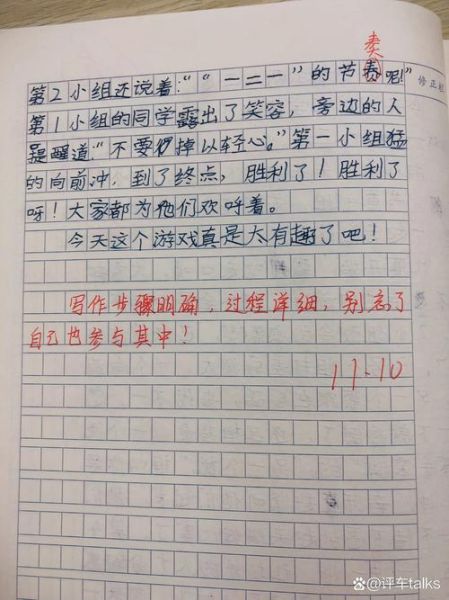 奏
第2小组还说着:““一二一”的节奏呢!”
修正栏
第1小组的同学露出了笑容,旁边的人
提醒道:“不要掉以轻心。”第一小组猛
的向前冲,到了终点,胜利了!胜利了
呀!大家都为他们欢呼着。
今天这个游戏真是太有趣了吧!
写作步骤明确,过程详细,别忘了
自己也参与其中!
11.10
@评车talks